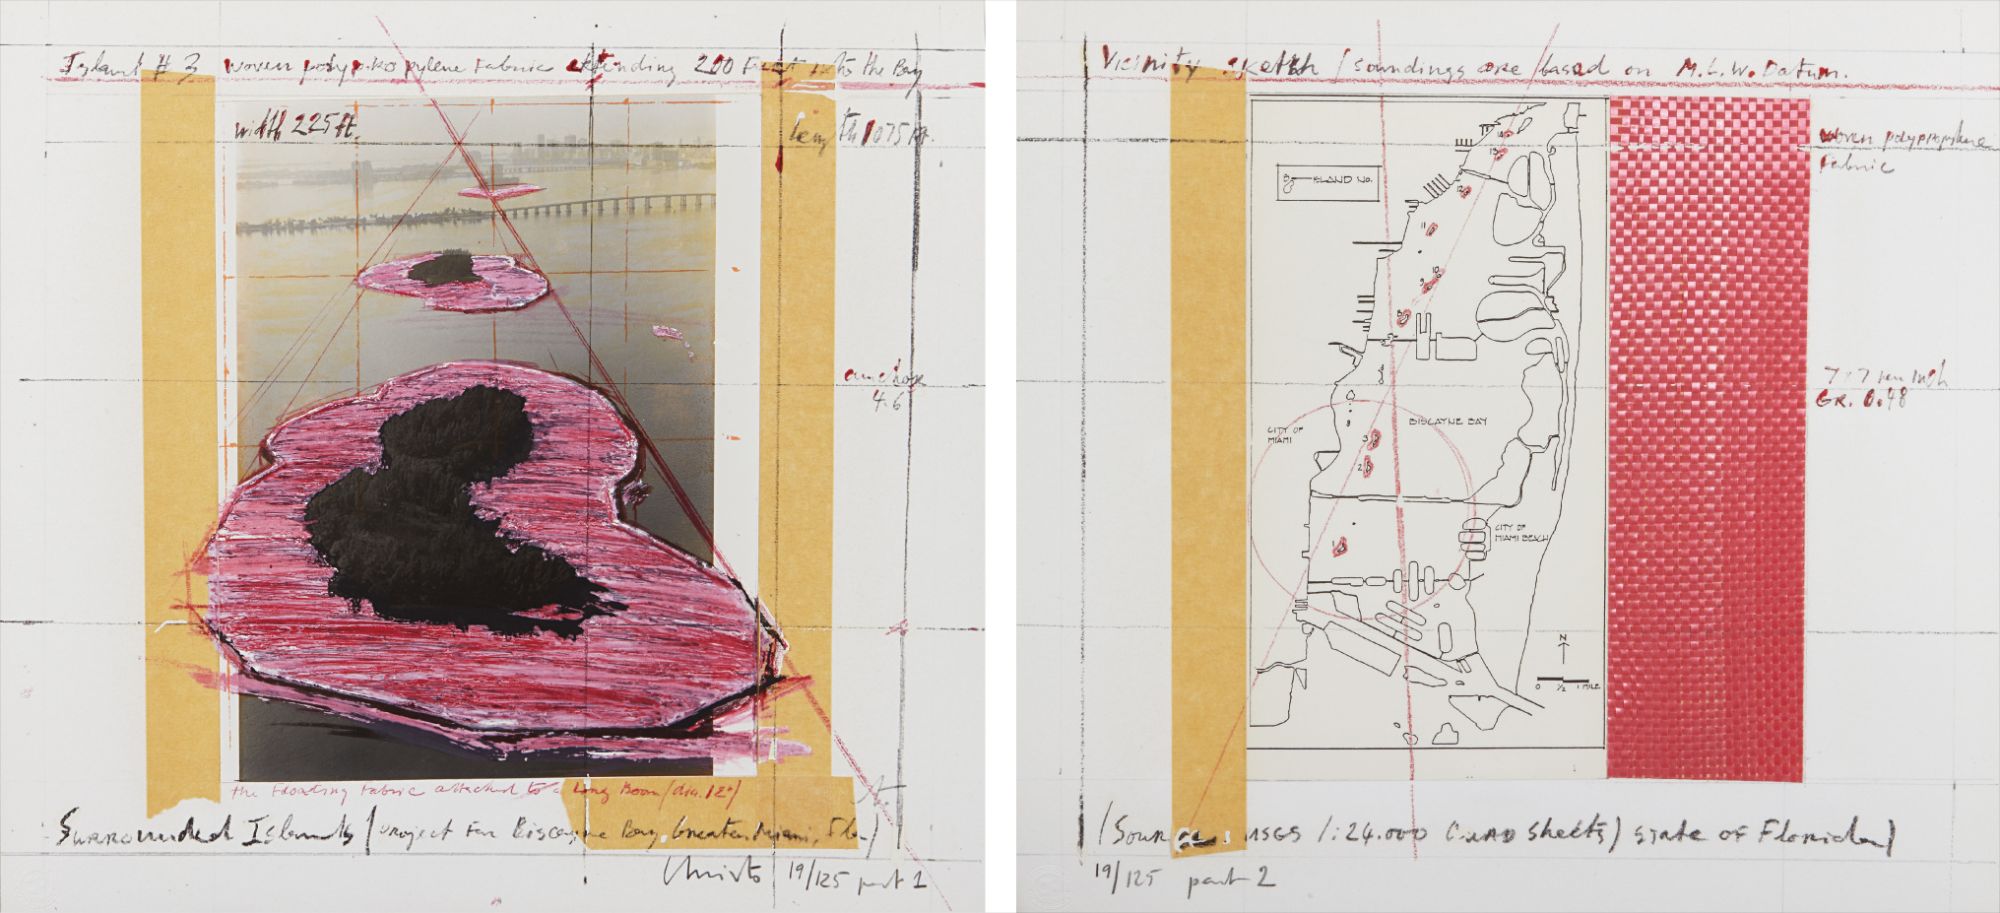 Island # 3 woven polypropylene Fabric extending 200 Feet into the Bay
width 225 ft.
length 1075 ft.
anchors
4.6
the Floating Fabric attached to a Long Boom (dia. 12")
Surrounded Islands (project For Biscayne Bay, Greater Miami, Fla.)
Christo 19/125 part 1
Vicinity sketch / soundings are based on M.L.W. Datum.
ISLAND NO.
woven polypropylene
Fabric
7 x 7 per inch
GR. 0.48
14
13
12
11
10
9
8
BISCAYNE BAY
CITY OF
MIAMI
3
2
CITY OF
MIAMI BEACH
1
N
0 1/2 1 MILE
(Source: USGS 1:24.000 QUAD Sheets) State OF Florida)
19/125 part 2